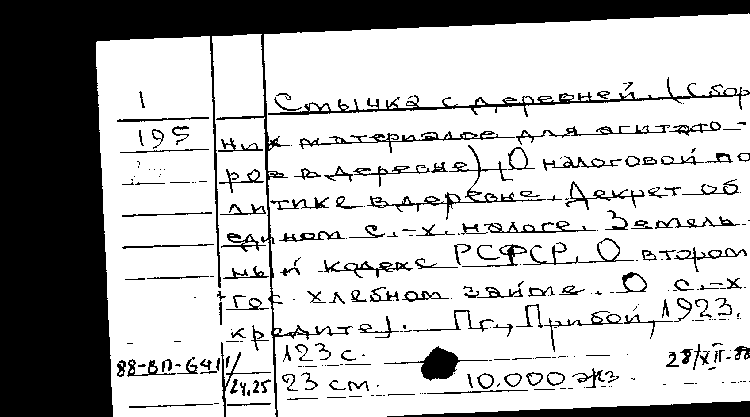 1 Смычка с деревней. (Сбор
195 ник материалов для агитато-
ров в деревне) [О налоговой по
литике в деревне. Декрет об
едином с.-х. налоге. Земель-
ный кодекс РСФСР. О втором
гос. хлебном займе. О с.-х
кредите]. Пг., Прибой, 1923.
123 с.
88-ВП-6411/24,25 23 см. 10.000 экз 28/XII-88